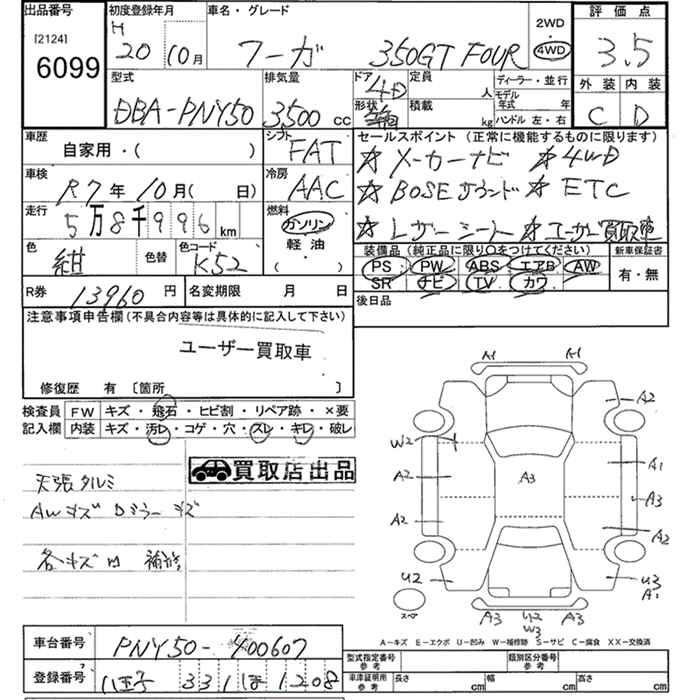 出品番号 初度登録年月 車名・グレード 2WD 評価点
[2124] H 20 10月 フーガ 350GT FOUR 4WD 3.5
6099 型式 排気量 ドア 4D 定員 人 ディーラー・並行 外装 内装
DBA-PNY50 3500 cc 形状 箱 積載 kg モデル年式 年 ハンドル 左・右 C D
車歴 自家用・( ) シフト FAT セールスポイント (正常に機能するものに限ります)
車検 R7年10月( 日) 冷房 AAC ☆メーカーナビ ☆4WD
走行 5万8千996km 燃料 ガソリン ☆BOSEサウンド ☆ETC
色 紺 色替 色コード K52 軽油 ( ) ☆レザーシート ☆ユーザー買取車
装備品 (純正品に限り○をつけてください) 新車保証書
PS PW ABS エアB AW 有・無
SR ナビ TV カワ
R券 13960円 名変期限 月 日 後日品
注意事項申告欄 (不具合内容等は具体的に記入して下さい)
ユーザー買取車
修復歴 有 〔箇所 〕
検査員 FW キズ・飛石・ヒビ割・リペア跡・×要
記入欄 内装 キズ・汚レ・コゲ・穴・スレ・キレ・破レ
買取店出品
天張タルミ
AWキズ Dミラーキズ
各キズ凹 補修
A1 A1
A2
W2
A2 A3 A1
A3
A2 A2
U2 U3
A1
スペ
A3 U2 A3
W3
A-キズ E-エクボ U-凹み W-補修跡 S-サビ C-腐食 XX-交換済
車台番号 PNY50-400607
登録番号 八王子 331 ほ 1208
型式指定番号 類別区分番号
車庫証明用参考 長さ cm 幅 cm 高さ cm